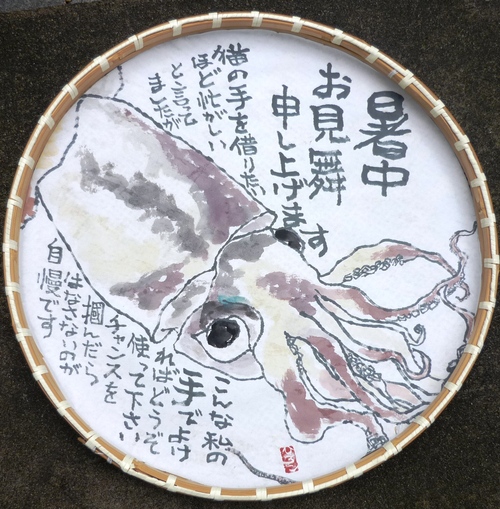 暑中
お見舞
申し上げます
猫の手を借りたい
ほど忙がしい
と言って
ましたが
こんな私の
手でよけ
ればどうぞ
使って下さい
チャンスを
掴んだら
はなさないのが
自慢です